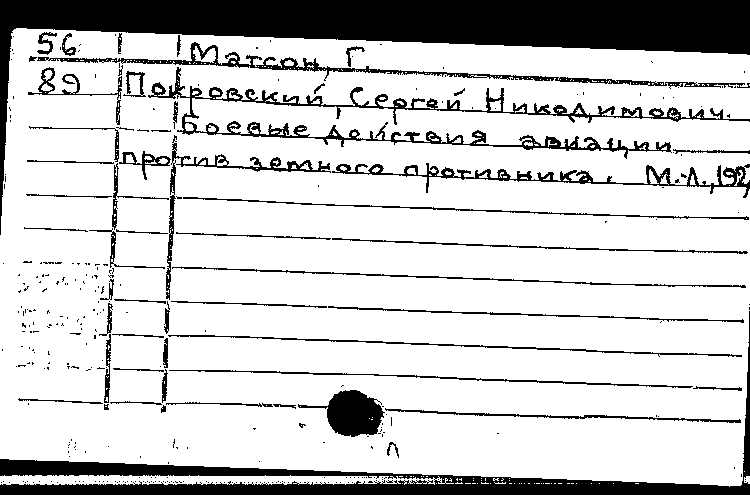 56 Матсон, Г.
89 Покровский, Сергей Никодимович.
Боевые действия авиации
против земного противника. М.-Л.,